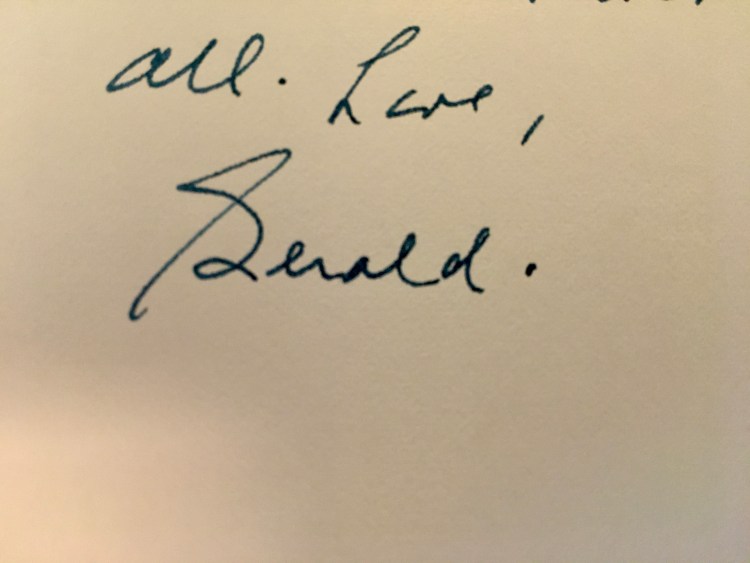 all. Love,
Gerald.